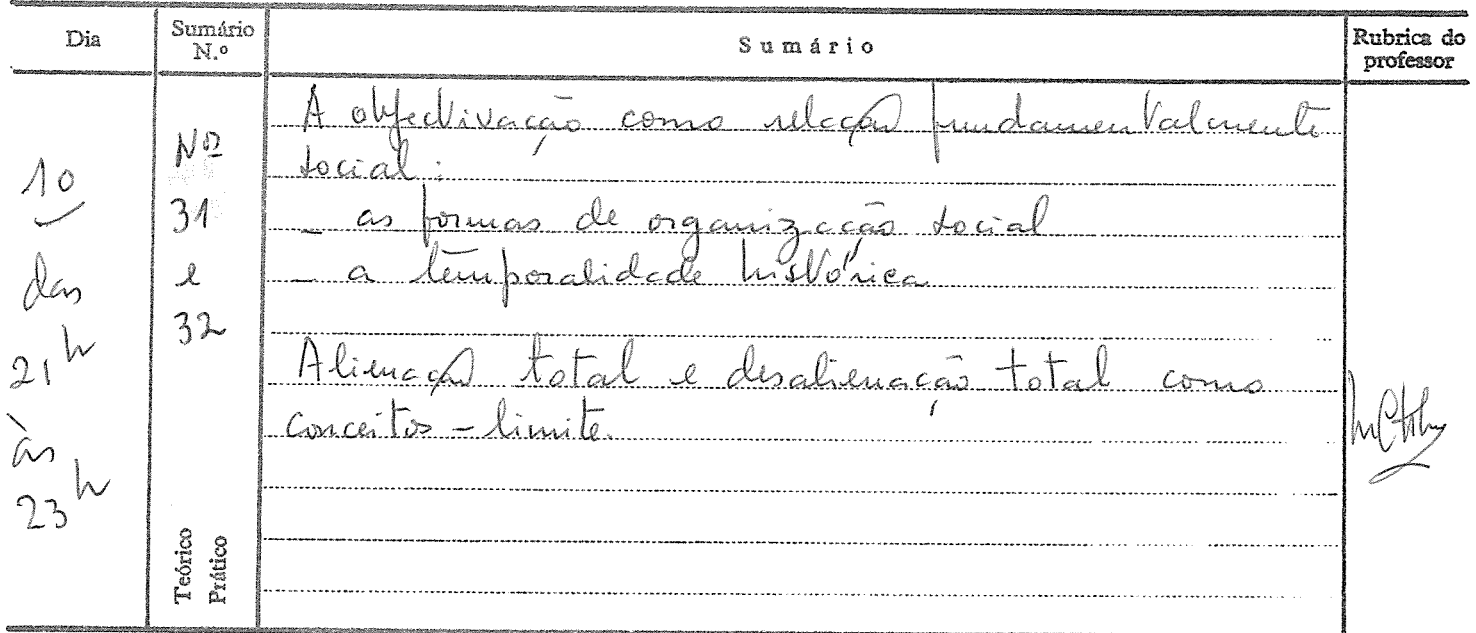 Dia
Sumário N.º
Sumário
Rubrica do professor
10
das
21h
às
23h
Nº
31
e
32
Teórico
Prático
A objectivação como relação fundamentalmente
social:
- as formas de organização social
- a temporalidade histórica
Alienação total e desalienação total como
conceitos-limite.